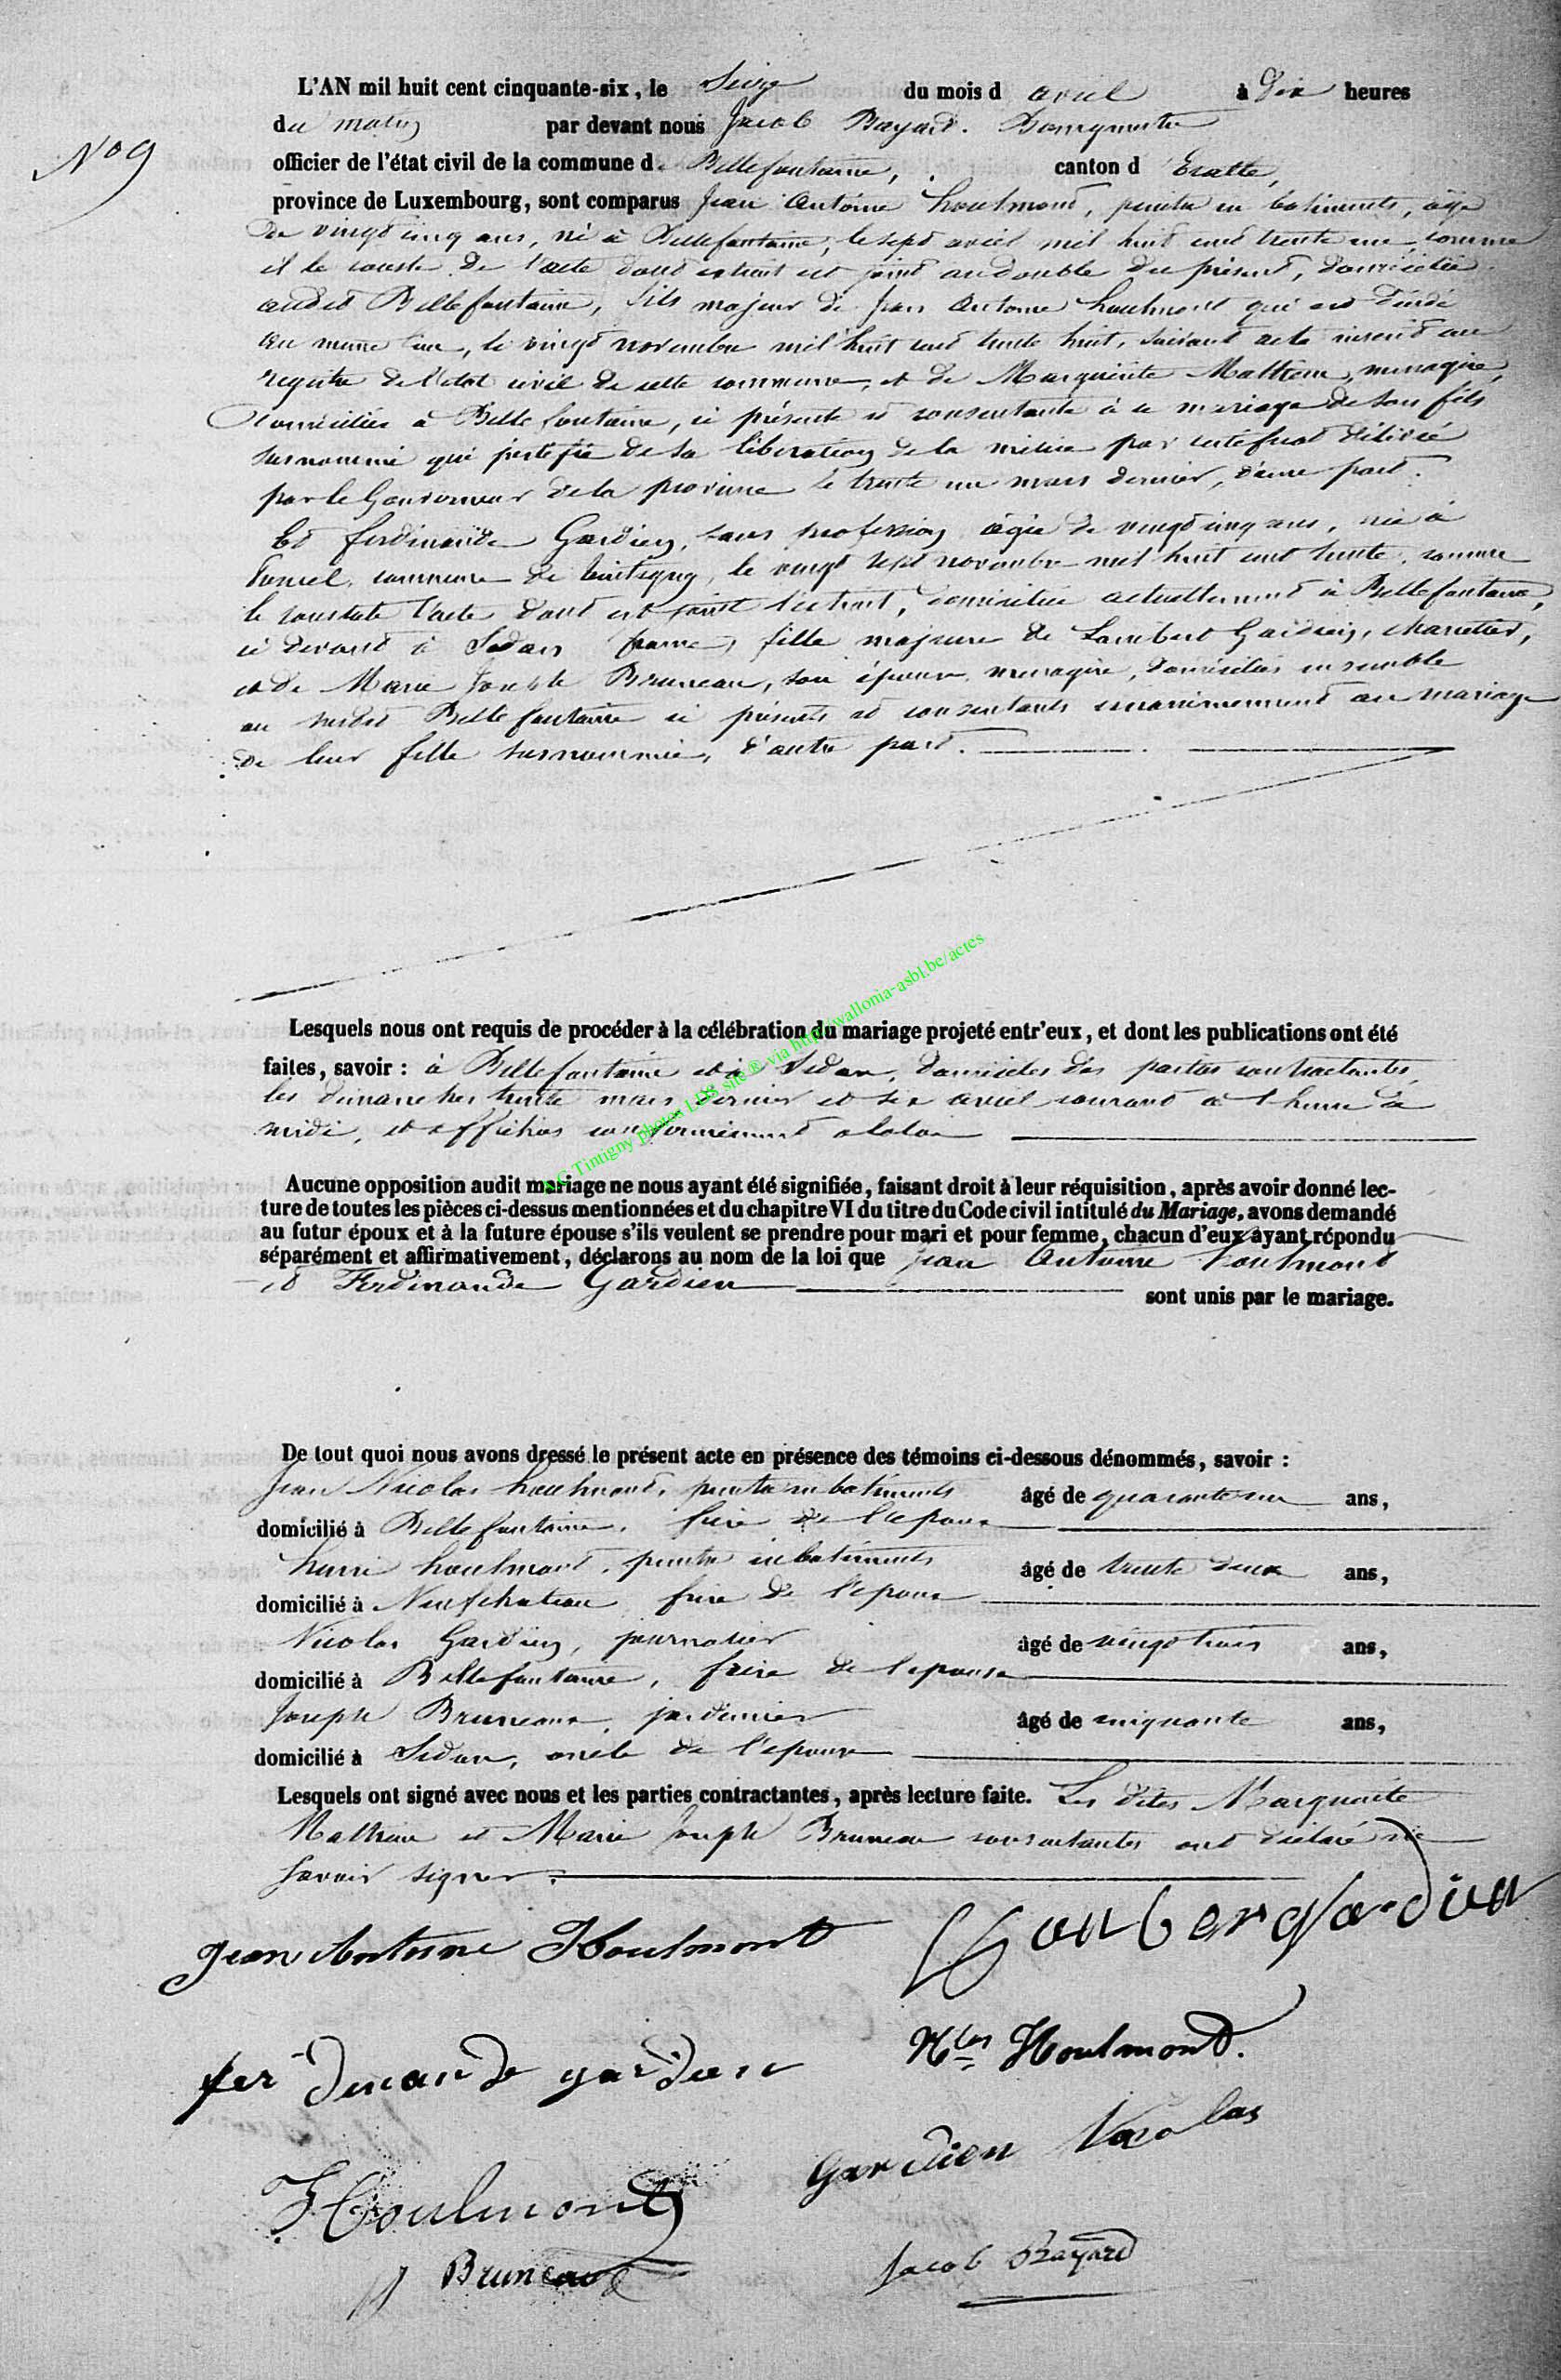 N° 9
L'AN mil huit cent cinquante-six, le Seize du mois d avril à Dix heures
du matin par devant nous Jacob Bayard. Bourgmestre
officier de l'état civil de la commune d. Bellefontaine, canton d' Etalle,
province de Luxembourg, sont comparus Jean Antoine houlmont, peintre en batiments, âgé
De vingt cinq ans, né à Bellefontaine, le sept avril mil huit cent trente un, comme
il le conste de l'acte dont extrait est joint au double du présent, domicilié
audit Bellefontaine, fils majeur de Jean Antoine houlmont qui est décédé
au même lieu, le vingt novembre mil huit cent trente huit, suivant acte inscrit au
registre de l'état civil de cette commune, et de Marguerite Mathieu, menagère,
domiciliée à Bellefontaine, ci présente et consentante à ce mariage de son fils
surnommé qui justifie de sa libération de la milice par certificat délivré
par le Gouverneur de la province le trente un mars dernier, d'une part.
Et ferdinande Gardien, sans profession âgée de vingt cinq ans, née à
commune de tintigny, le vingt sept novembre mil huit cent trente, comme
le constate l'acte dont est joint l'extrait, domiciliée actuellement à Bellefontaine,
ci devant à Sedan france, fille majeure de Lambert Gardien, charretier,
et de Marie Joseph Bruneau, son épouse menagère, domiciliés ensemble
au susdit Bellefontaine ci présents et consentants unanimement au mariage
de leur fille surnommée, d'autre part.
Lesquels nous ont requis de procéder à la célébration du mariage projeté entr'eux, et dont les publications ont été
faites, savoir : à Bellefontaine et à Sedan, domiciles des parties contractantes
les dimanches trente mars dernier et six avril courant à l'heure de
midi, et affichées conformément à la loi
Aucune opposition audit mariage ne nous ayant été signifiée, faisant droit à leur réquisition, après avoir donné lec-
ture de toutes les pièces ci-dessus mentionnées et du chapitre VI du titre du Code civil intitulé du Mariage, avons demandé
au futur époux et à la future épouse s'ils veulent se prendre pour mari et pour femme, chacun d'eux ayant répondu
séparément et affirmativement, déclarons au nom de la loi que Jean Antoine houlmont
et Ferdinande Gardien sont unis par le mariage.
De tout quoi nous avons dressé le présent acte en présence des témoins ci-dessous dénommés, savoir :
Jean Nicolas houlmont, peintre en batiments âgé de quarante un ans,
domicilié à Bellefontaine, frère de l'epoux
henri houlmont, peintre en batiments âgé de trente deux ans,
domicilié à Neufchateau frère de l'epoux
Nicolas Gardien, journalier âgé de vingt trois ans,
domicilié à Bellefontaine, frère de l'epouse
Joseph Bruneaux, jardinier âgé de cinquante ans,
domicilié à Sedan, oncle de l'epouse
Lesquels ont signé avec nous et les parties contractantes, après lecture faite. Les dites Marguerite
Mathieu et Marie Joseph Bruneau consentantes ont déclaré ne
savoir signer.
Jean Antoine Houlmont
Lanber gardien
fer dinande gardien
Nlas Houlmont.
Gardien Nicolas
H Houlmont
J Bruneaux
Jacob Bayard
Tintigny photos LDS site ® via http://wallonia-asbl.be/actes